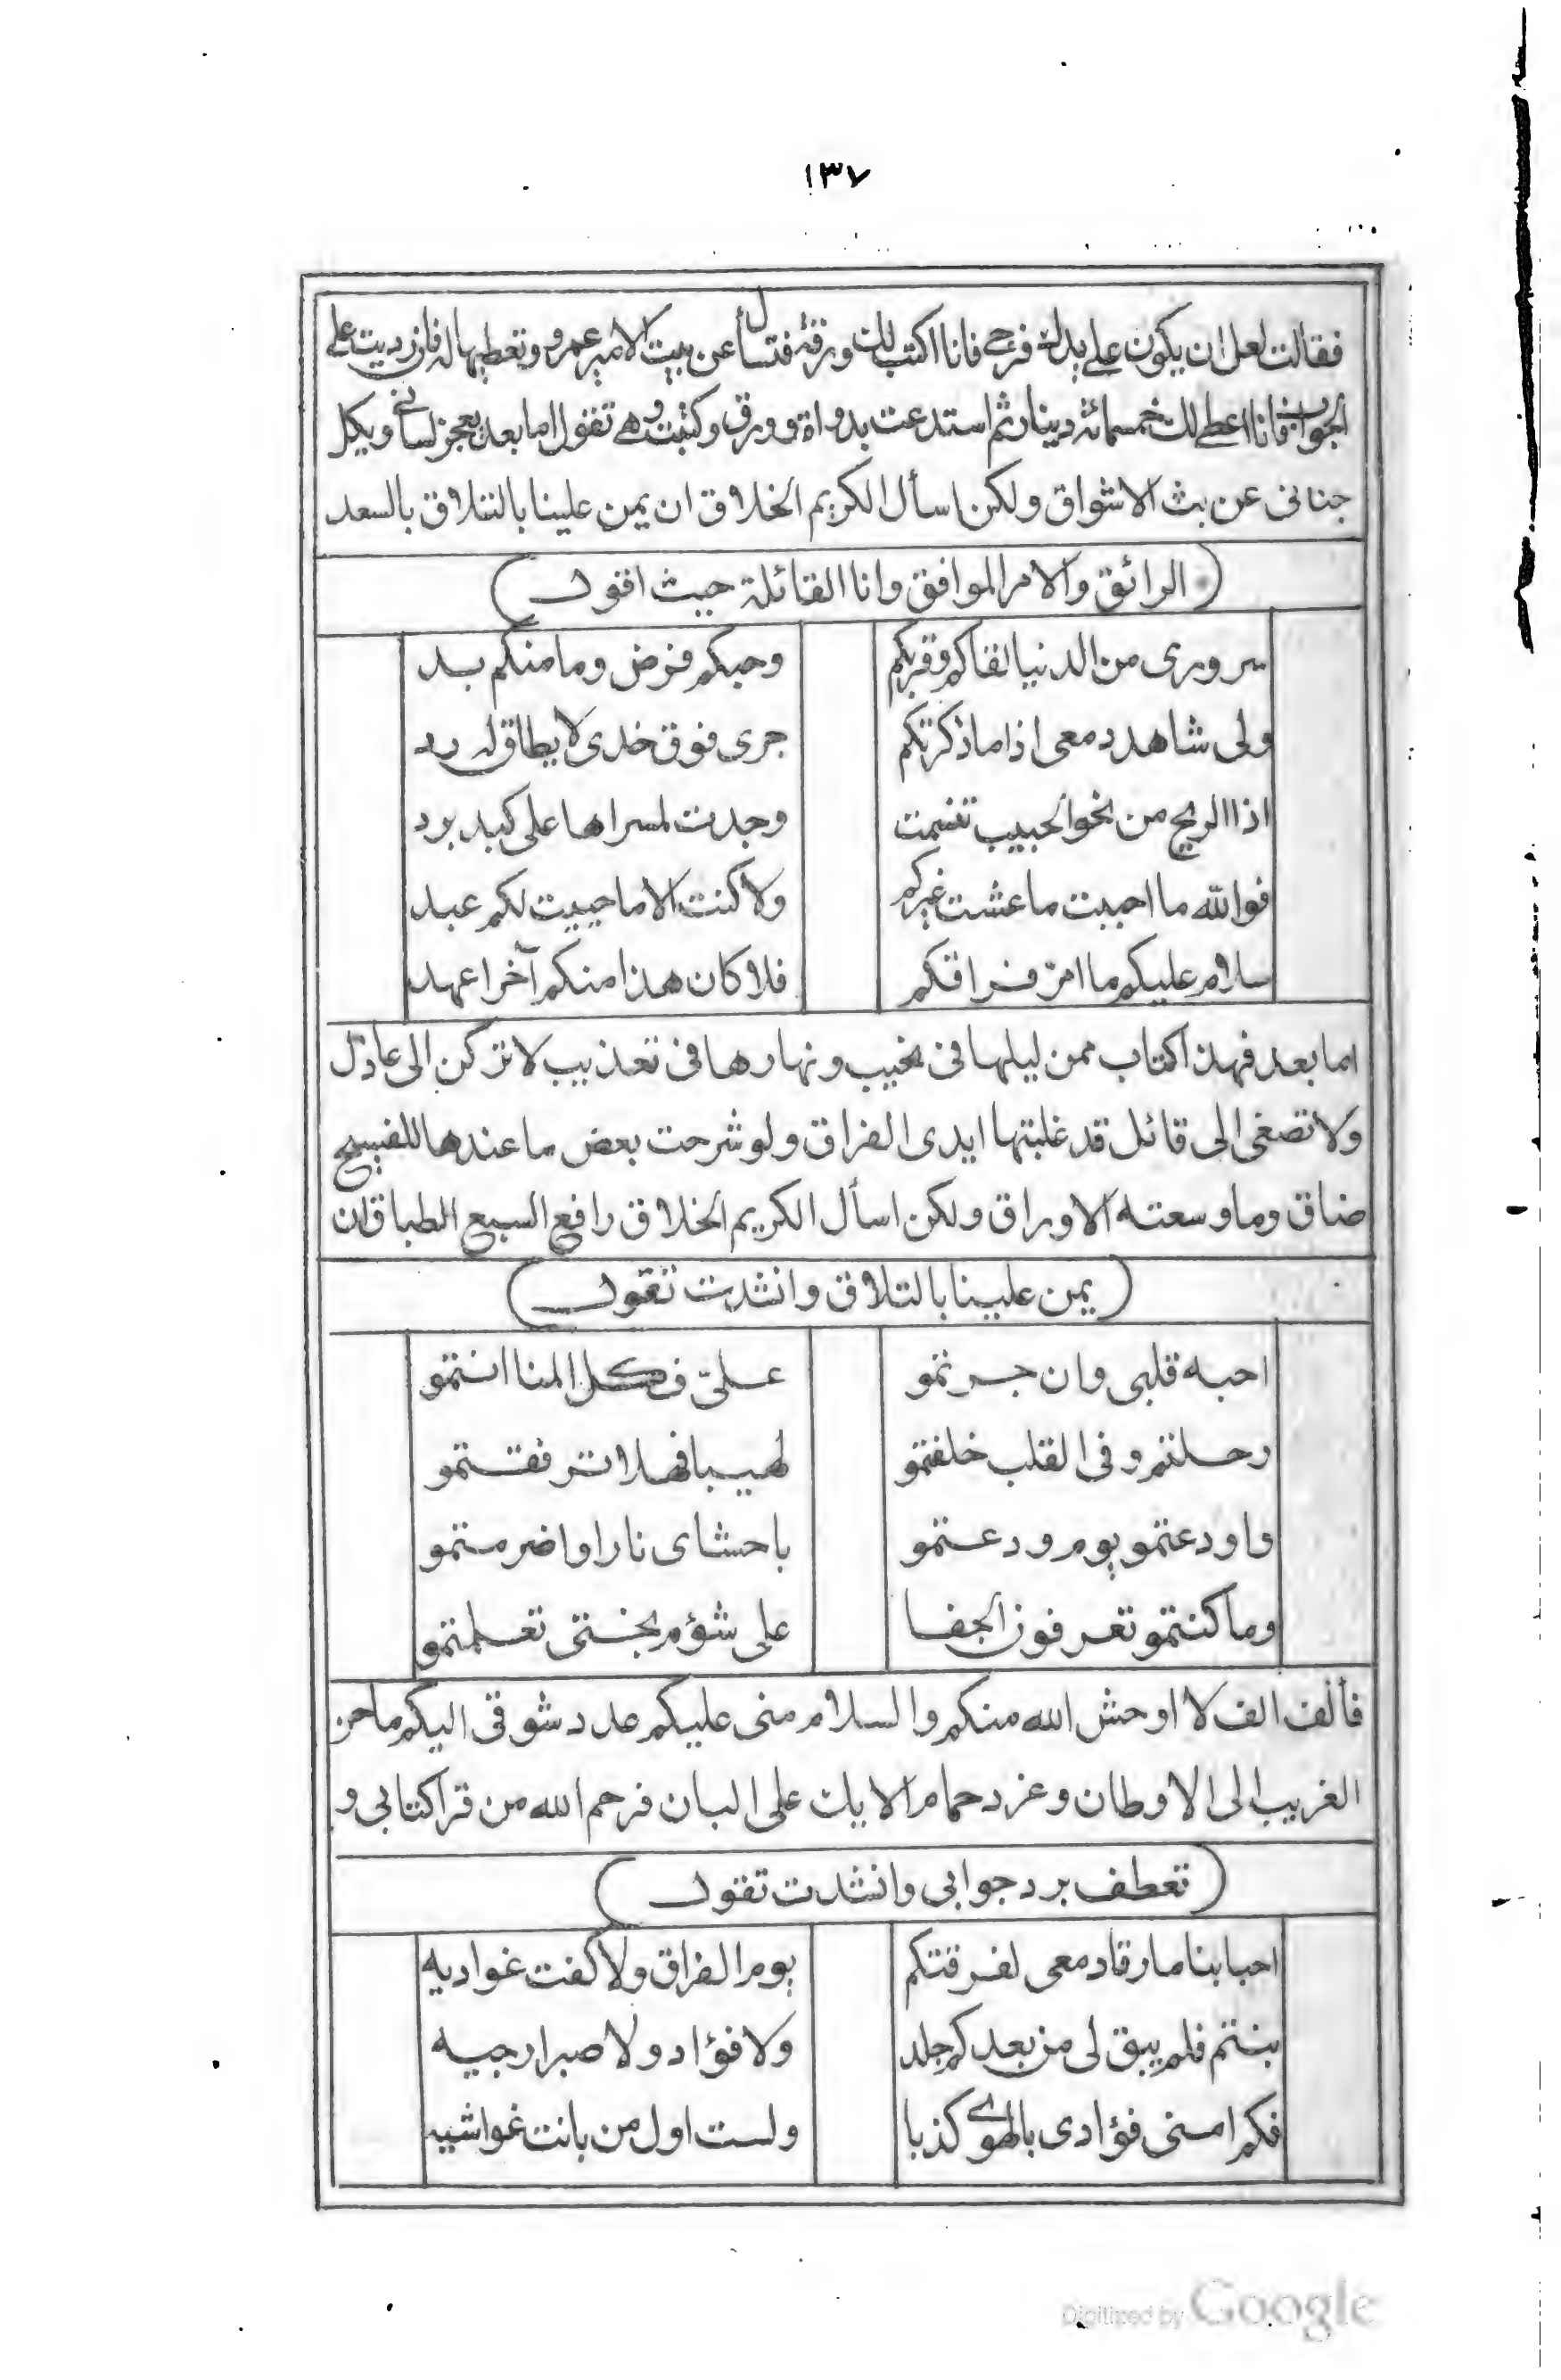 ١٣٧
فقالت لعل ان يكون على يدك فرجى فانا اكتب لك ورقة فتسأل عن بيت الامير عمرو وتعطيها له فان رديت على
الجواب فانا اعطى لك خمسمائة دينار ثم استدعت بدواة وورق وكتبت وهى تقول اما بعد يعجز لسانى ويكل
جنانى عن بث الاشواق ولكن اسأل الكريم الخلاق ان يمن علينا بالتلاق بالسعد
( الرائق والامر الموافق وانا القائلة حيث اقول )
سرورى من الدنيا لقاكم وقربكم وحبكم فرض وما منكم بد
ولى شاهد دمعى اذا ما ذكرتكم جرى فوق خدى لا يطاق له رد
اذا الريح من نحو الحبيب تنسمت وجدت لمسراها على كبد برد
فوالله ما احببت ما عشت غيركم ولا كنت الا ما حييت لكم عبد
سلام عليكم ما امرّ فراقكم فلا كان هذا منكم آخرا عهد
اما بعد فهذا كتاب ممن ليلها فى نحيب ونهارها فى تعذيب لا تركن الى عاذل
ولا تصغى الى قائل قد غلبتها ايدى الفراق ولو شرحت بعض ما عندها للفسيح
ضاق وما وسعته الاوراق ولكن اسأل الكريم الخلاق رافع السبع الطباق ان
( يمن علينا بالتلاق وانشدت تقول )
احبه قلبى وان جرتمو علىّ فكل المنا انتمو
رحلتم وفى القلب خلفتمو لهيبا فهلا ترفقتمو
واودعتمو يوم ودعتمو باحشاى نارا واضرمتمو
وما كنتمو تعرفون الجفا على شؤم بختى تعلمتمو
فألف الف لا اوحش الله منكم والسلام منى عليكم عدد شوقى اليكم ما حن
الغريب الى الاوطان وغرد حمام الايك على البان فرحم الله من قرا كتابى و
( تعطف برد جوابى وانشدت تقول )
احبابنا ما رقا دمعى لفرقتكم يوم الفراق ولا كفت غواديه
بنتم فلم يبق لى من بعدكم جلد ولا فؤاد ولا صبر ارجيه
فكم امنى فؤادى بالهوى كذبا ولست اول من بانت غواشيه
Digitized by Google